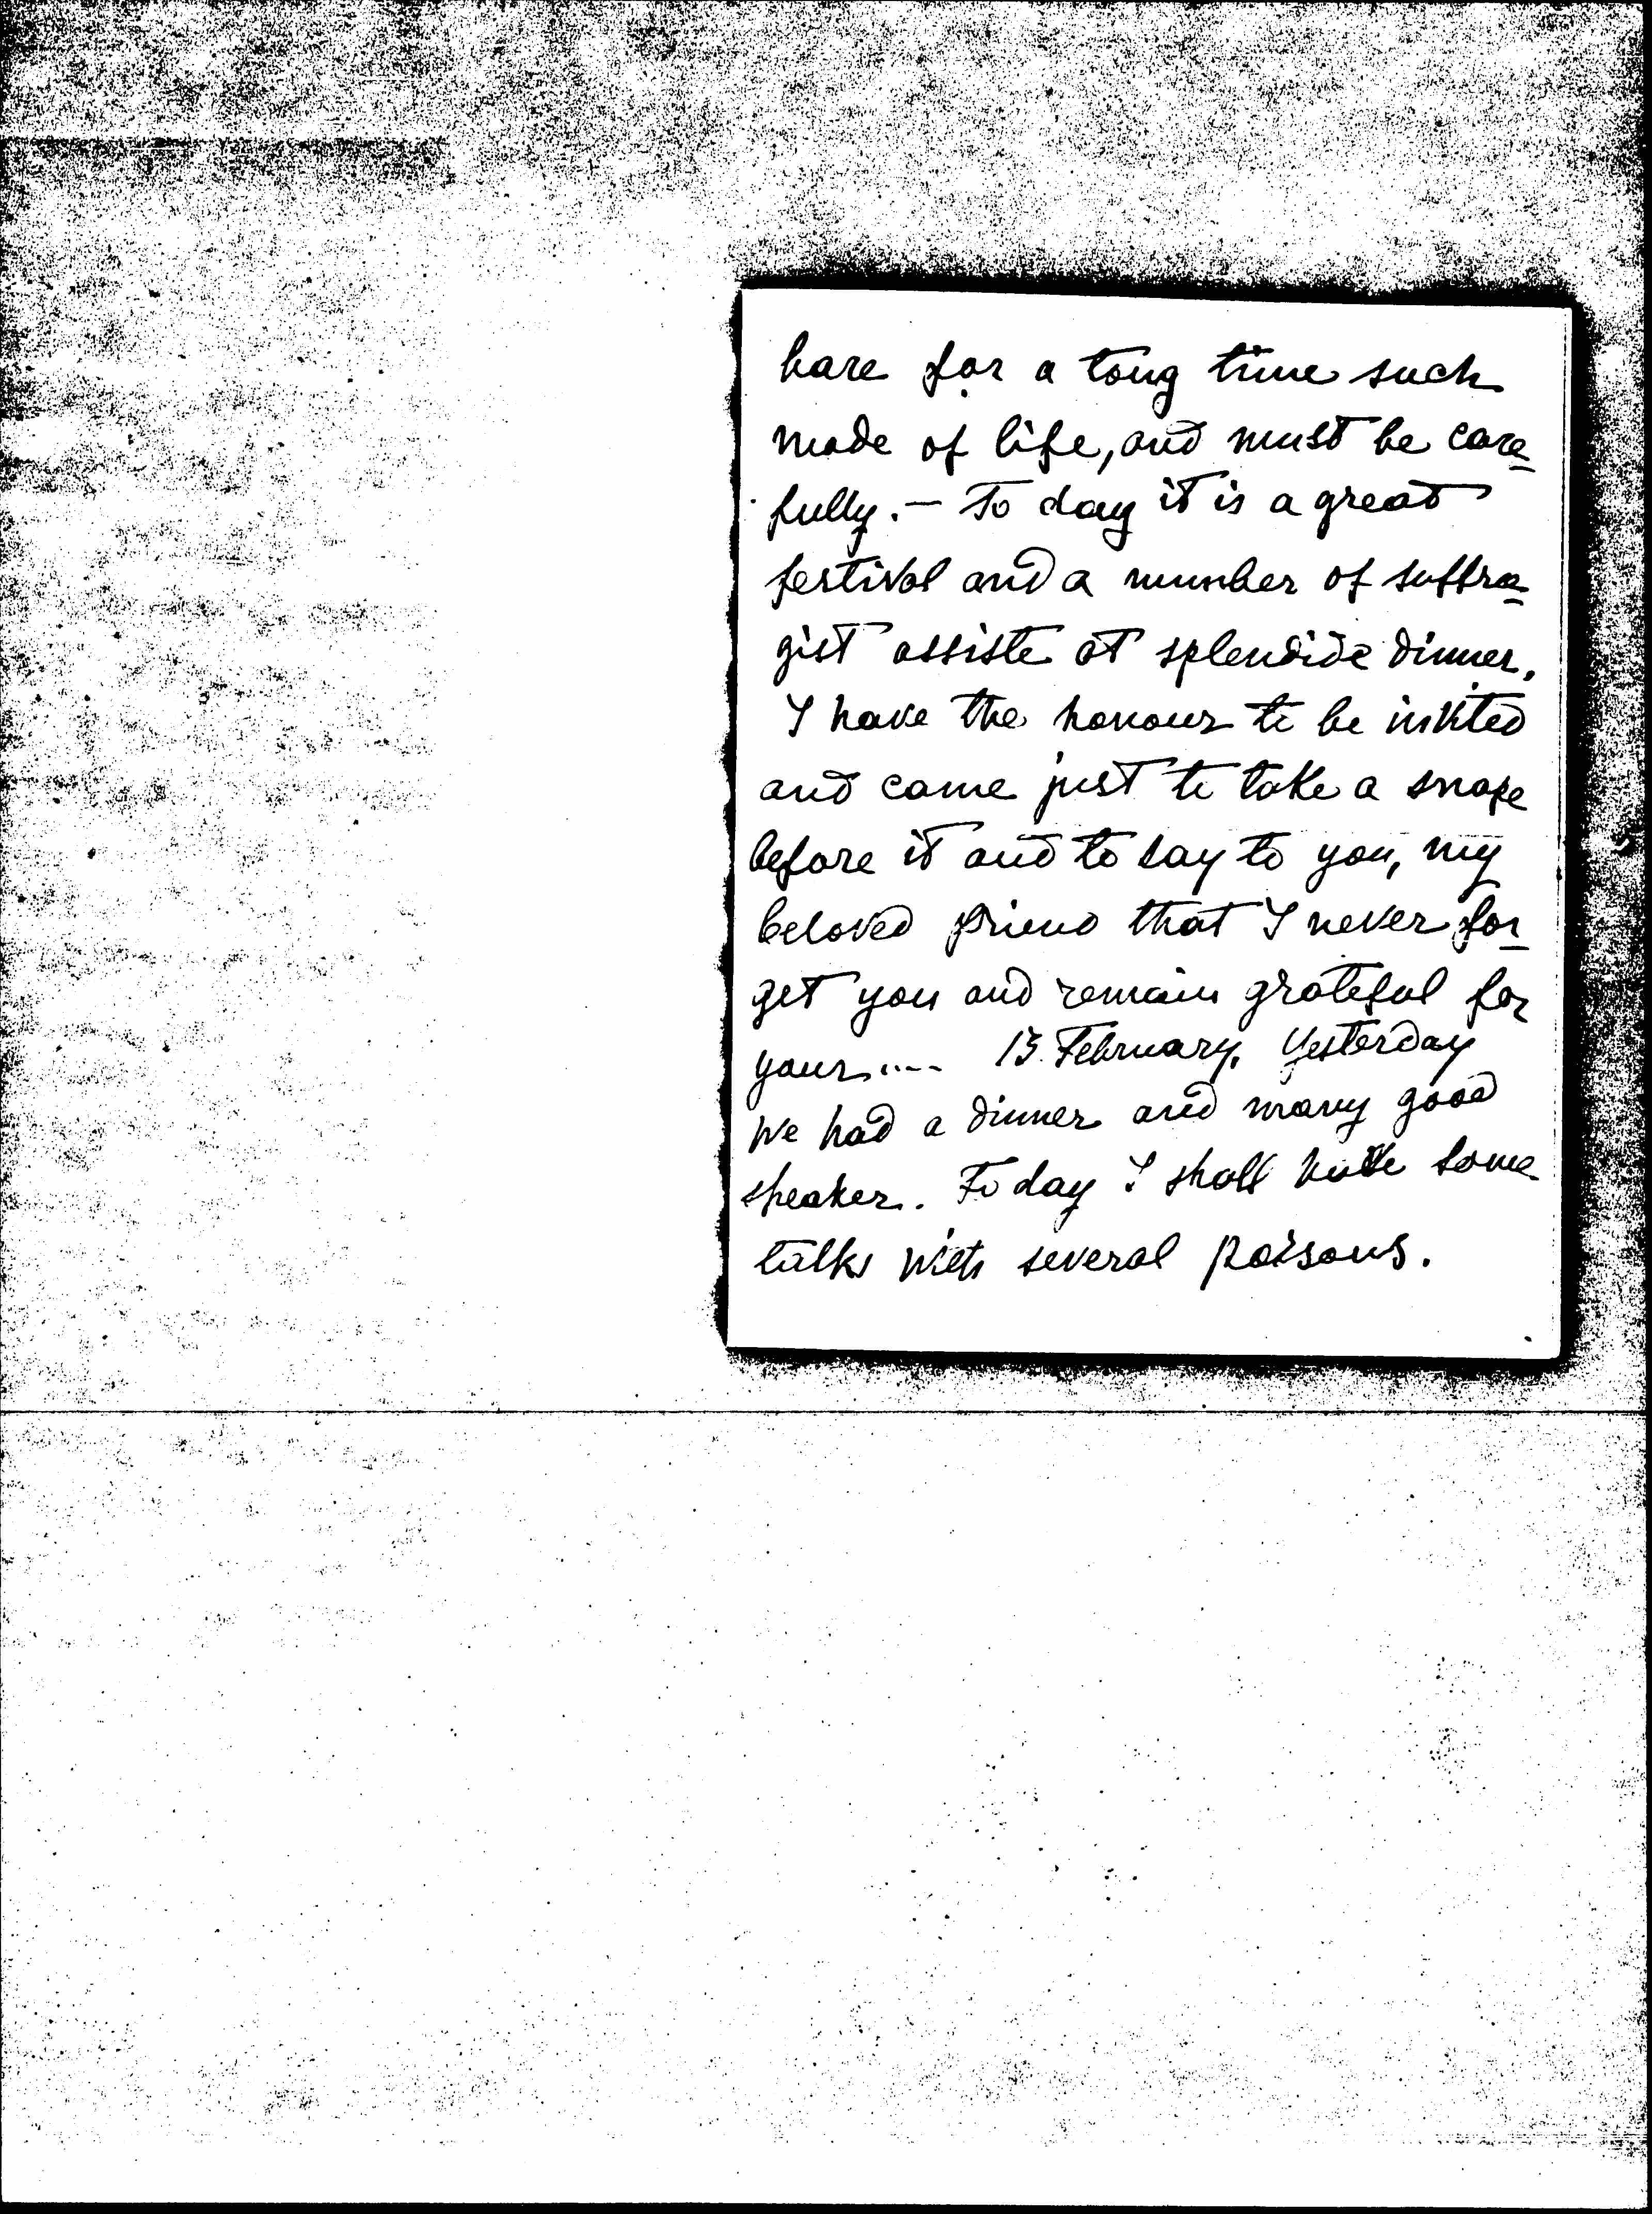 bare for a long time such
mode of life, and must be care
fully. — To day it is a great
festival and a number of suffra
gist assiste at splendide dinner.
I have the honour to be invited
and came just to take a snape
before it and to say to you, my
beloved friend that I never for
get you and remain grateful for
your .... 13 February. Yesterday
we had a dinner and many good
speaker. To day I shall have some
talks with several poisons.